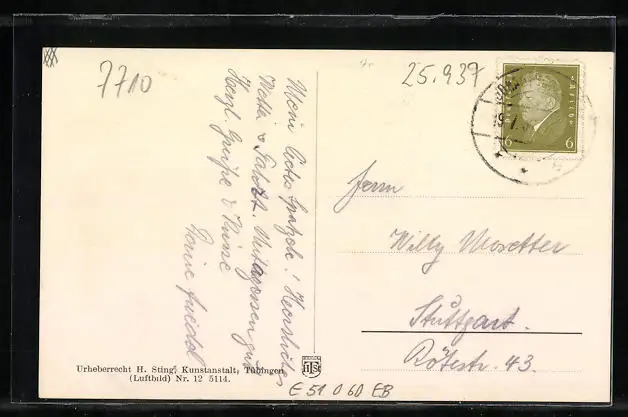 7710
25.937
6 6
Mein liebs Spatzele! Herrliches
Wetter u. Fahrt. Mittagessen gut
Herzl. Grüße u. Küsse
Deine Friedel
Herrn
Willy
Stuttgart.
Rötestr. 43.
Urheberrecht H. Sting, Kunstanstalt, Tübingen
(Luftbild) Nr. 12 5114.
HSt
E 51 0 60 EB